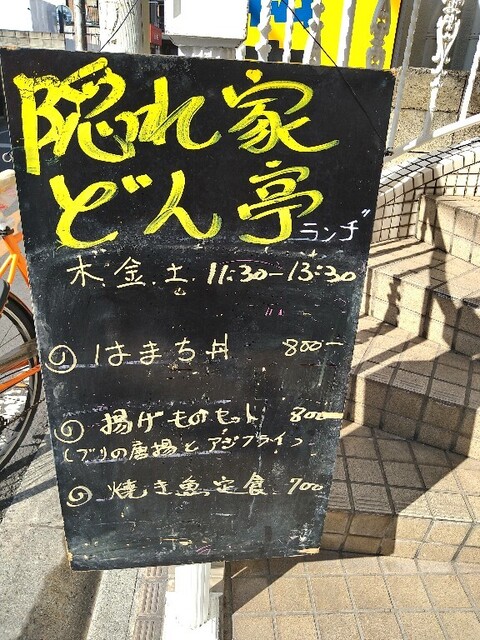 隠れ家
どん亭
ランヂ
木.金.土. 11:30-13:30
はまち丼 800-
揚げものセット 800
(ブリの唐揚とアジフライ)
焼き魚定食 700